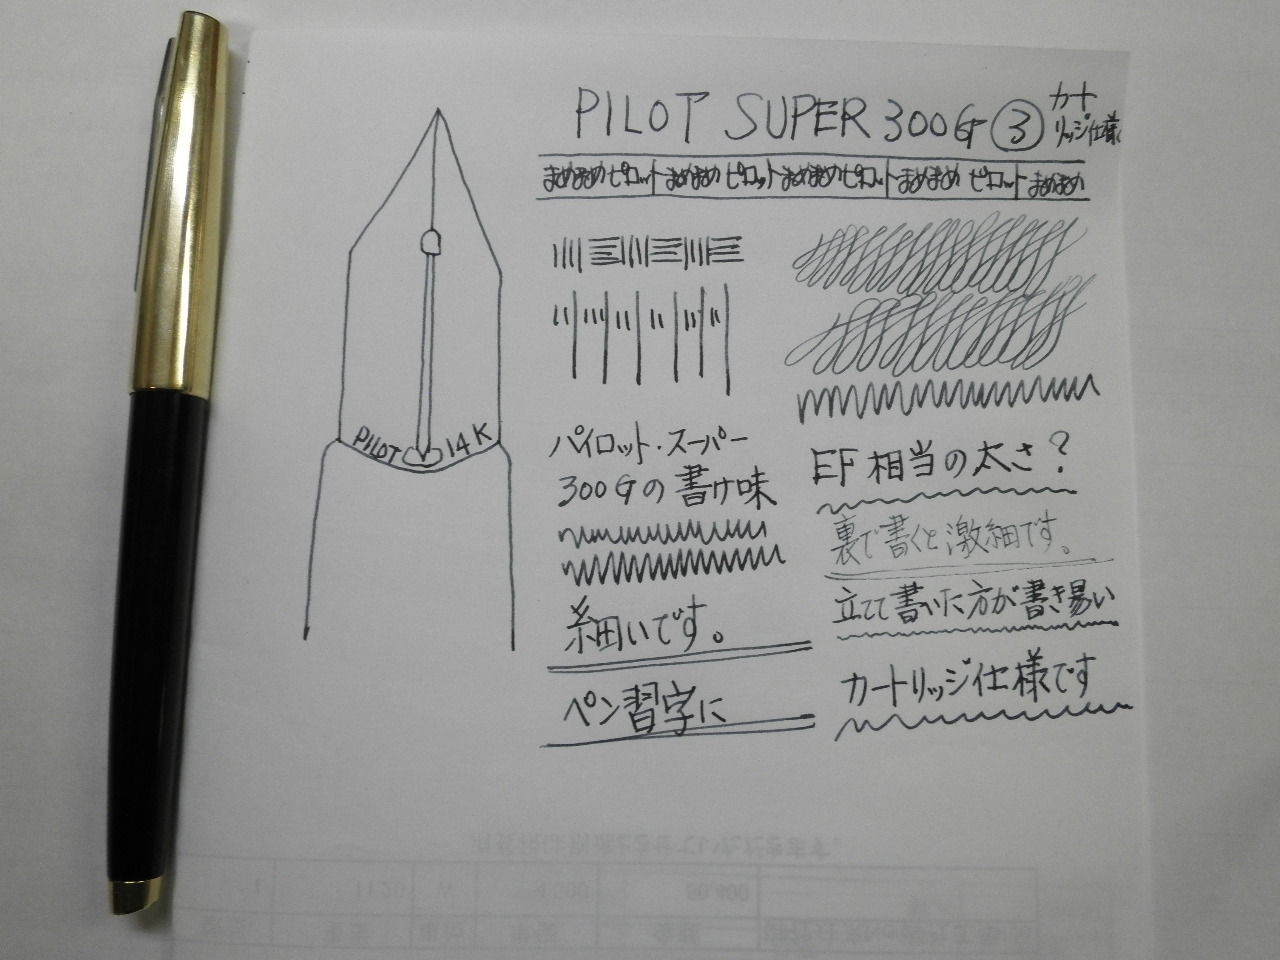 PILOT SUPER 300G ③ カート
リッジ仕様
まめまめピロット まめまめ ピロット まめまめピロット まめまめ ピロット まめまめ
PILOT 14K
パイロット・スーパー
300Gの書け味
細いです。
ペン習字に
EF相当の太さ?
裏で書くと激細です。
立てて書いた方が書き易い
カートリッジ仕様です